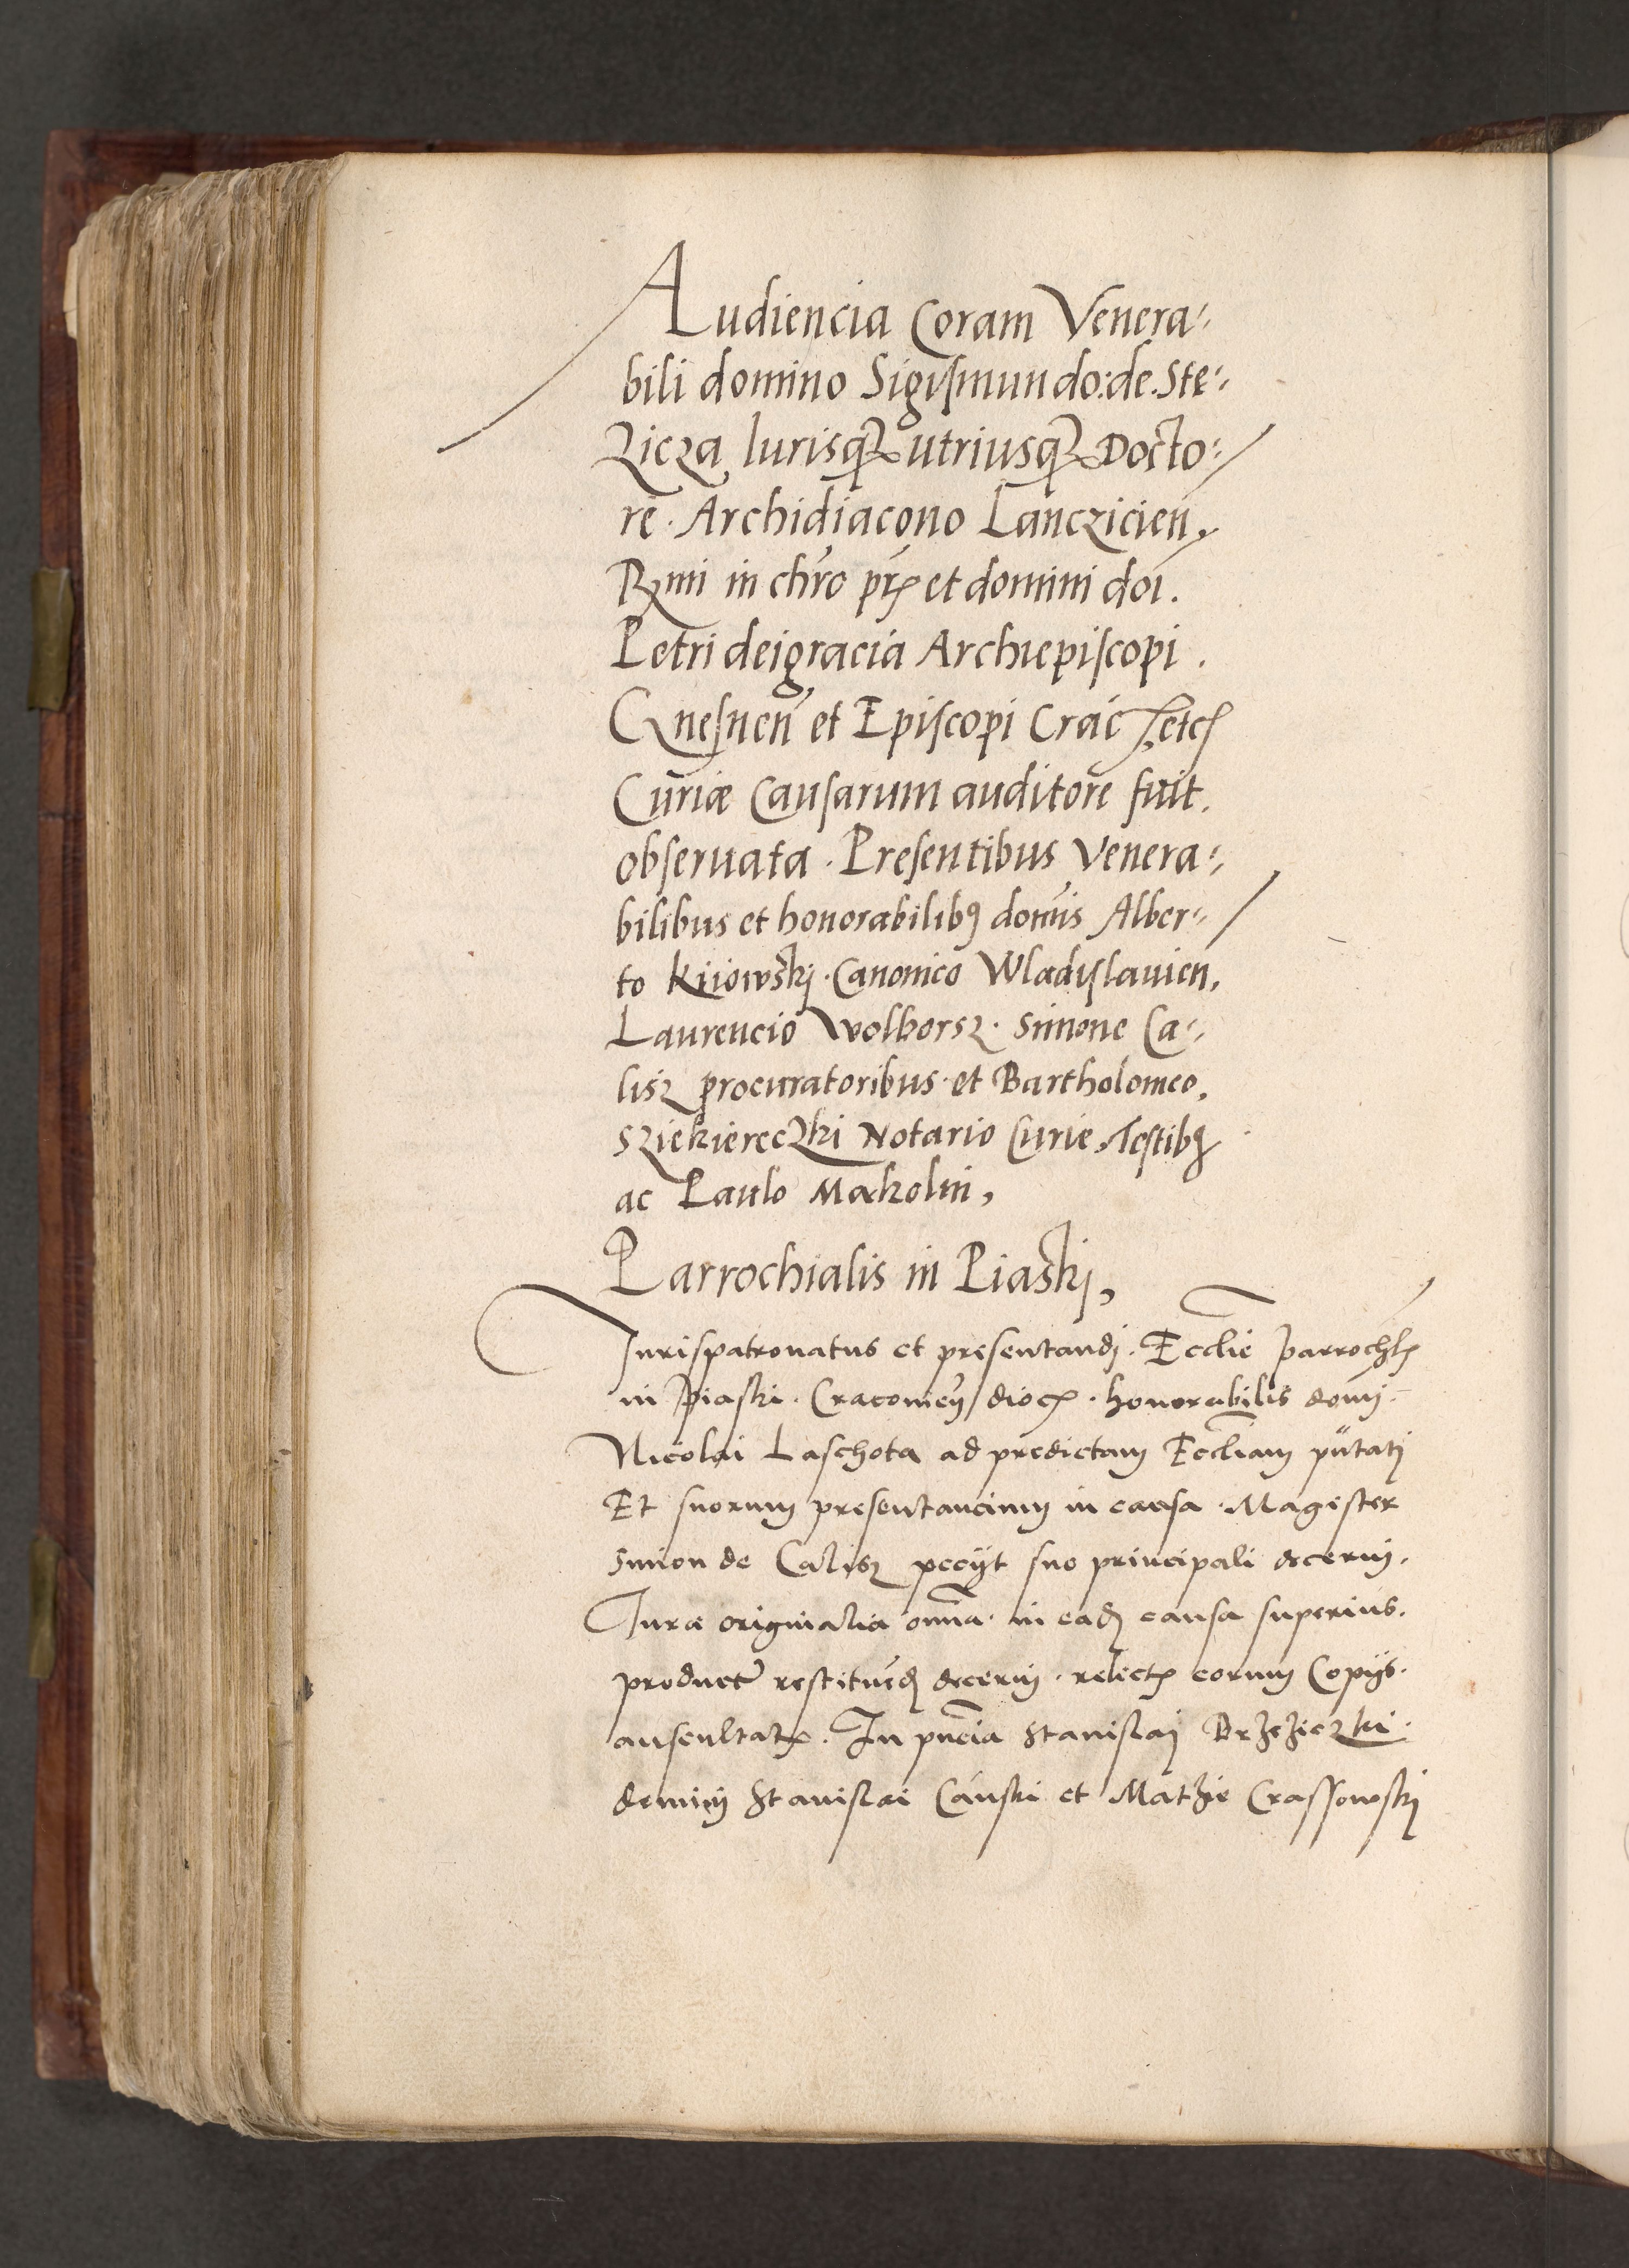 Audiencia Coram Venera-
bili domino Sigismundo: de. Stę-
zicza Iurisqꝫ utriusqꝫ Docto-
re. Archidiacono Lanczicien,
Rmi in chro prꝭ et domini doi.
Petri dei gracia Archiepiscopi.
Gnesnen et Episcopi Crac etcꝭ
Curiæ Causarum auditore fuit.
obseruata. Presentibus Venera-
bilibus et honorabilibꝰ domis Alber-
to Kiiowskj. Canonico Wladislauien,
Laurencio Wolborsz. Simone Ca-
lisz procuratoribus. et Bartholomeo,
Sziekiereczki Notario Curie, Testibꝰ
ac Paulo Makolin,
Parrochialis in Piaskj,
Jurispatronatus et presentandj. Ecclie parrochlꝭ
in Piaski. Cracouień diocꝭ. honorabilis domj
Nicolai Laschota ad predictam Eccliam pñtatj
Et suorum presentancium in causa. Magister
Simon de Calisz pecijt suo principali decernj.
Jura originalia omnia. in eadꝫ causa superius.
product restituendꝫ decernj. relictꝭ eorum Copijs.
auscultatꝭ. In pncia Stanislaj Brzeziczki.
dominj Stanislai Canski et Mathie Crassowskj